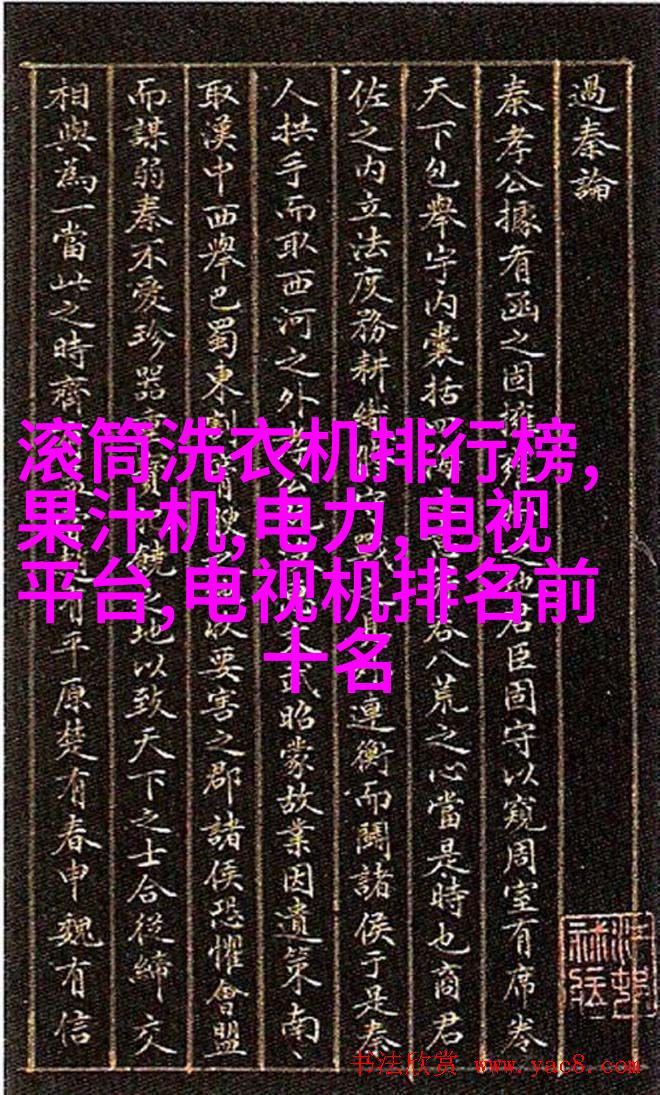 過秦論
秦孝公據有函之固擁
君臣固守以窺周室有席卷
天下包舉宇内囊括四
八荒之心當是時也商君
佐之内立法度務耕織
連衡而鬭諸侯于是秦
人拱手而取西河之外
昭蒙故業因遺策南
取漢中西舉巴蜀東割
要害之郡諸侯恐懼會盟
而謀弱秦不愛珍器
地以致天下之士合從締交
相與為一當此之時齊
有平原楚有春申魏有信
滚筒洗衣机排行榜,
果汁机,电力,电视
平台,电视机排名前
十名
书法欣赏 www.yac8.com